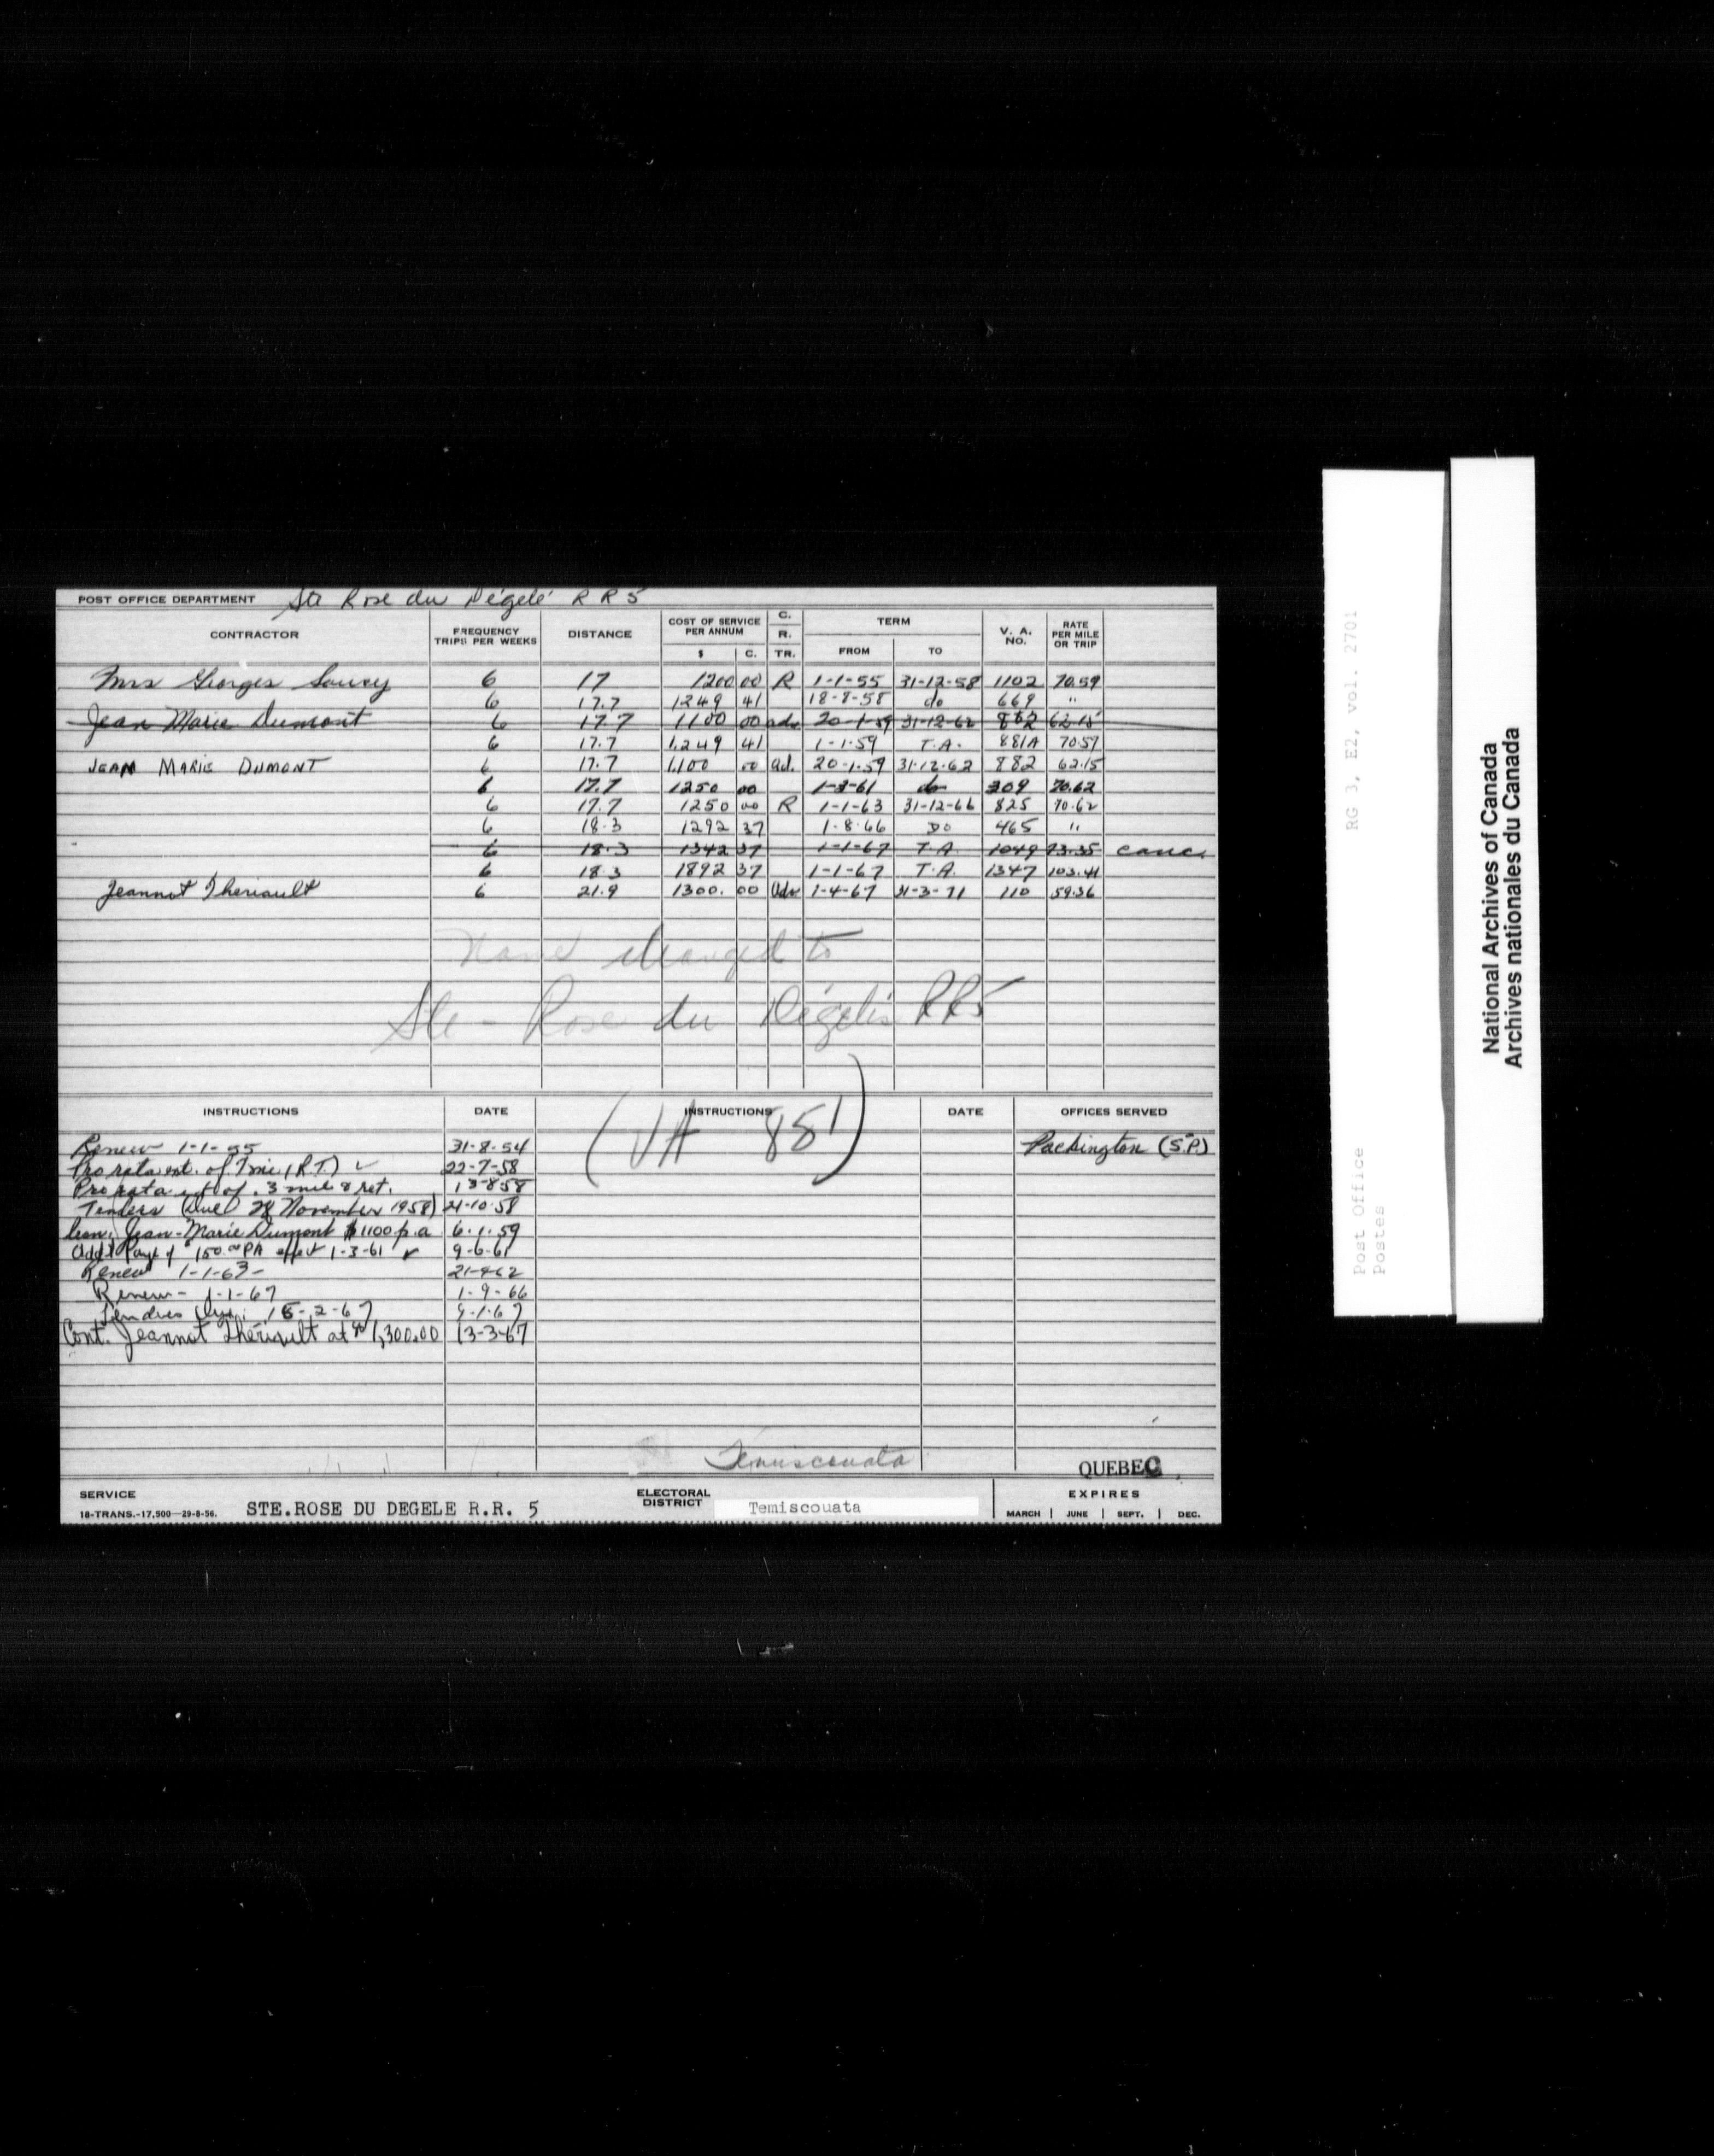 POST OFFICE DEPARTMENT Ste Rose du Dégelé R R 5
CONTRACTOR FREQUENCY TRIPS PER WEEKS DISTANCE COST OF SERVICE PER ANNUM $ C. C. R. TR. TERM FROM TO V. A. NO. RATE PER MILE OR TRIP
Mrs Georges Soucy 6 17 1200 00 R 1-1-55 31-12-58 1102 70.59
6 17.7 1249 41 18-8-58 do 669 "
Jean Marie Dumont 6 17.7 1100 00 adv 20-1-59 31-12-62 882 62.15
6 17.7 1,249 41 1-1-59 T.A. 881A 70.57
JEAN MARIE DUMONT 6 17.7 1,100 00 ad. 20-1-59 31-12-62 882 62.15
6 17.7 1250 00 1-3-61 do 309 70.62
6 17.7 1250 00 R 1-1-63 31-12-66 825 70.62
6 18.3 1292 37 1-8-66 DO 465 "
6 18.3 1342 37 1-1-67 T.A. 1049 73.35 canc.
6 18.3 1892 37 1-1-67 T.A. 1347 103.41
Jeannot Theriault 6 21.9 1300. 00 Adv 1-4-67 31-3-71 110 59.36
Name changed to
Ste-Rose du Dégelis RR5
(VA 851)
INSTRUCTIONS DATE INSTRUCTIONS DATE OFFICES SERVED
Renew 1-1-55 31-8-54 Packington (S.P.)
Pro rata ext. of .7 mi. (R.T.) 22-7-58
Pro rata ext of .3 mile & ret. 13-8-58
Tenders (Due 28 November 1958) 21-10-58
Jean-Marie Dumont $1100 p.a 6-1-59
Add'l Payt of $150.00 PA effect 1-3-61 9-6-61
Renew 1-1-63- 21-9-62
Renew- 1-1-67 1-9-66
15-2-67 9-1-67
Cont. Jeannot Thériault at $1,300.00 13-3-67
Temiscouata
QUEBEC
SERVICE STE.ROSE DU DEGELE R.R. 5 ELECTORAL DISTRICT Temiscouata EXPIRES
18-TRANS.-17,500—29-8-56. MARCH | JUNE | SEPT. | DEC.
Post Office RG 3, E2, vol. 2701
Postes
National Archives of Canada
Archives nationales du Canada